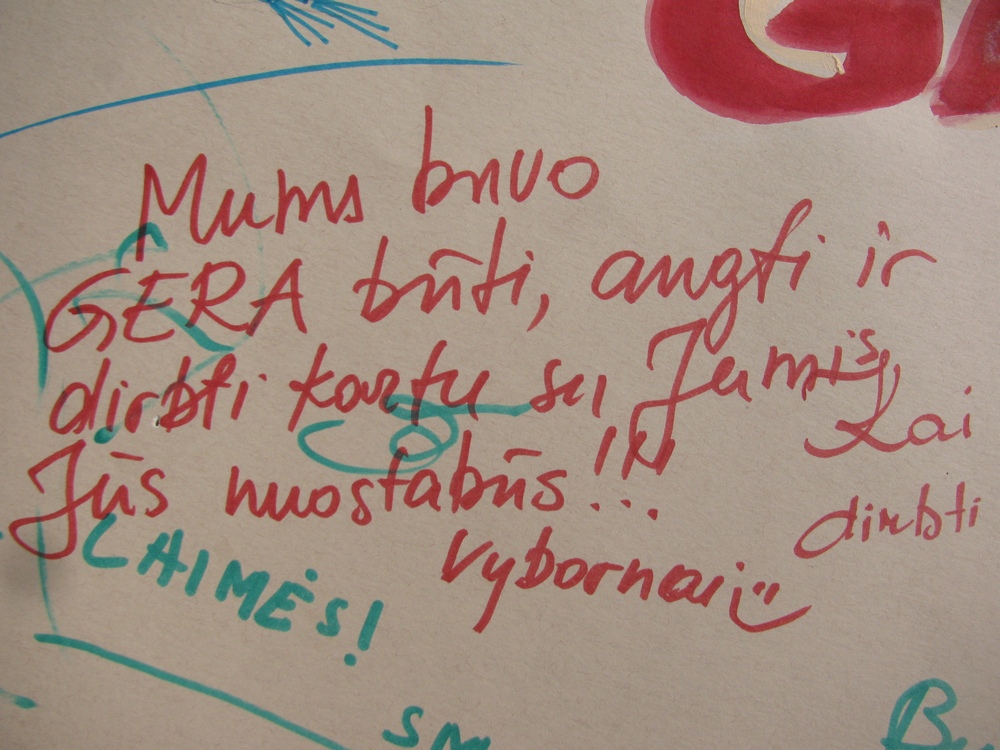 Mums buvo
GERA būti, augti ir
dirbti kartu su Jumis,
Jūs nuostabūs!!!
Vybornai
kai
dirbti
LAIMĖS!